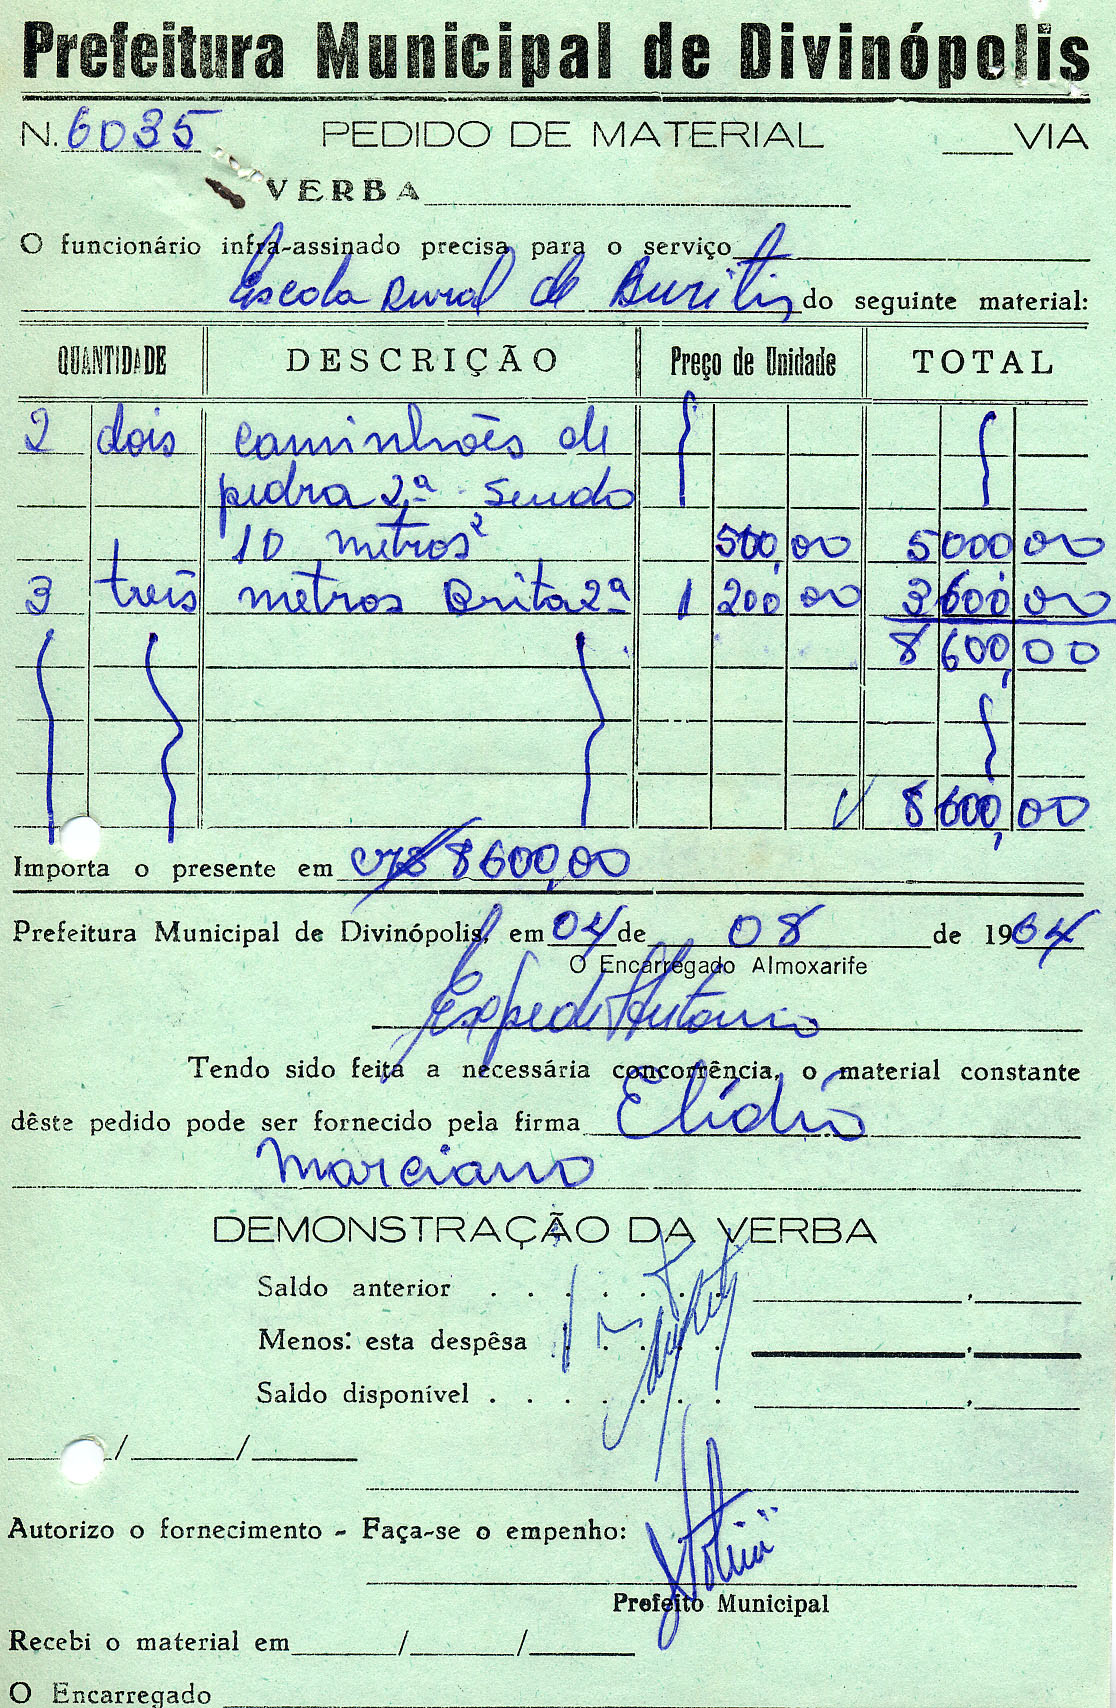 Prefeitura Municipal de Divinópolis
N. 6035 PEDIDO DE MATERIAL ____VIA
VERBA
O funcionário infra-assinado precisa para o serviço
Escola Rural de Buritis do seguinte material:
QUANTIDADE DESCRIÇÃO Preço de Unidade TOTAL
2 dois caminhões de
pedra 2ª sendo
10 metros² 500,00 5000,00
3 três metros Brita 2ª 1 200 00 3600,00
8 600,00
8 600,00
Importa o presente em cr$ 8600,00
Prefeitura Municipal de Divinópolis, em 04 de 08 de 1964
O Encarregado Almoxarife
Tendo sido feita a necessária concorrência, o material constante
dêste pedido pode ser fornecido pela firma Elídio
Marciano
DEMONSTRAÇÃO DA VERBA
Saldo anterior . . . . . . .
Menos: esta despêsa . . . . .
Saldo disponível . . . . . . .
____/____/____
Autorizo o fornecimento - Faça-se o empenho:
Prefeito Municipal
Recebi o material em____/____/____
O Encarregado